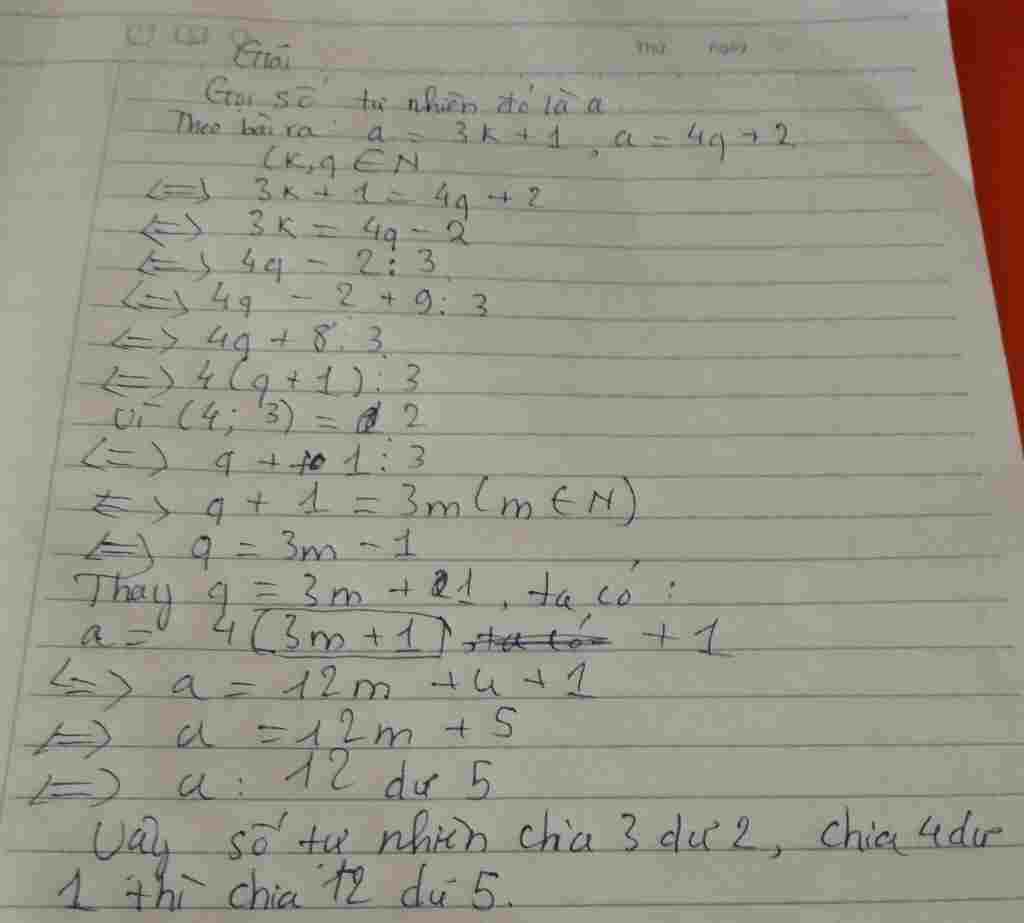 Giải
Gọi số tự nhiên đó là a
Theo bài ra: a = 3k + 1, a = 4q + 2
(k, q ∈ N
<=> 3k + 1 = 4q + 2
<=> 3k = 4q - 2
<=> 4q - 2 : 3
<=> 4q - 2 + 9 : 3
<=> 4q + 8 : 3
<=> 4(q + 1) : 3
Vì (4; 3) = 2
<=> q + 1 : 3
<=> q + 1 = 3m (m ∈ N)
<=> q = 3m - 1
Thay q = 3m + 1, ta có :
a = 4(3m + 1) + 1
<=> a = 12m + 4 + 1
<=> a = 12m + 5
<=> a : 12 dư 5
Vậy số tự nhiên chia 3 dư 2, chia 4 dư
1 thì chia 12 dư 5.